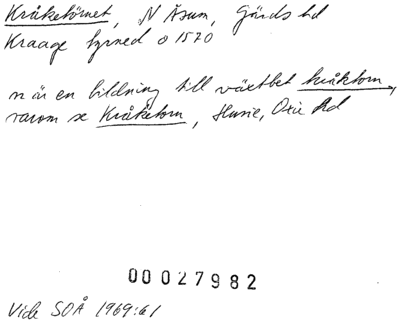 Kråketörnet, N Åsum, Gärds hd
Kraage tyrned o 1570
n är en bildning till växtbet kråktorn,
varom se Kråketorn, Husie, Oxie hd
00027982
Vide SOÅ 1969:61